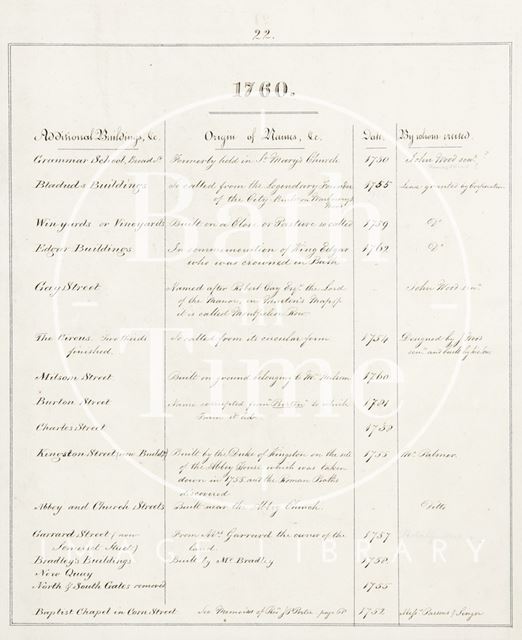 22.
1760.
Additional Buildings, &c. Origin of Names, &c. Date. By whom erected.
Grammar School, Broad St. Formerly held in St. Mary's Church 1750 John Wood senr.
Bladuds Buildings So called from the Legendary Founder 1755 Lease granted by Corporation
of the City.
Wineyards or Vineyards Built on a Close or Pasture so called 1759 Do
Edgar Buildings In commemoration of King Edgar 1762 Do
who was crowned in Bath
Gay Street Named after Robert Gay Esqr. the Lord John Wood senr.
of the Manor, in Maps
it is called Montpelier Row
The Circus. Two thirds So called from its circular form 1754 Designed by J. Wood
finished. senr. and built by his son
Milsom Street Built on ground belonging to Mr. Milsom 1760
Burton Street Name corrupted from to which
Charles Street
Kingston Street (now Buildgs) Built by the Duke of Kingston on the site 1755 Mr. Palmer.
of the Abbey House which was taken
down in 1755 and the Roman Baths
discovered
Abbey and Church Streets Built near the Abbey Church. Ditto
Garrard Street (now From Mrs. Garrard the owner of the 1757
Somerset Street) land.
Bradley's Buildings Built by Mr. Bradley 1758
New Quay
North & South Gates removed 1755
Baptist Chapel in Corn Street See Memories of Revd. J. Porter page 60 1752 Messrs. Parsons &
Bath
in
Time
LIBRARY